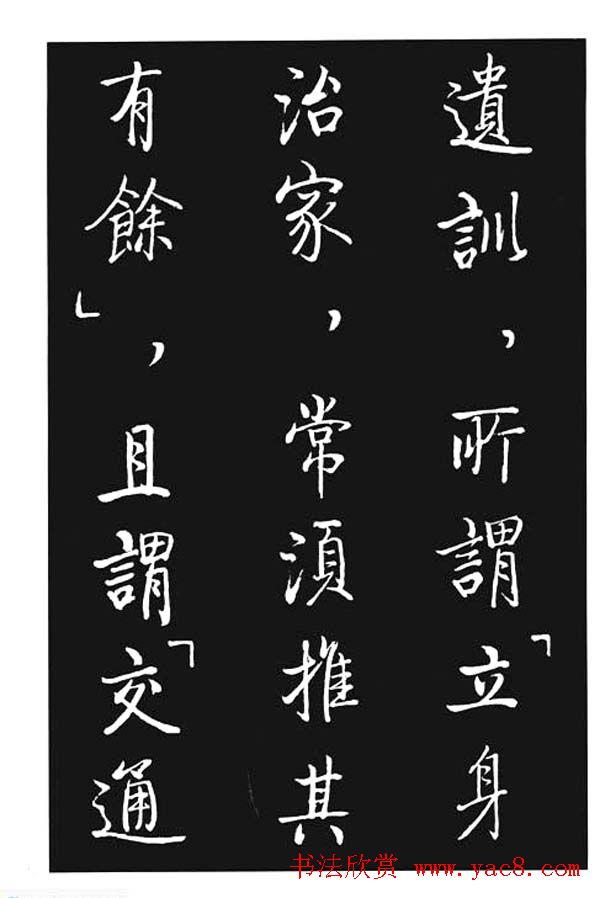 遺訓，所謂「立身
治家，常須推其
有餘」，且謂「交通
书法欣赏 www.yac8.com